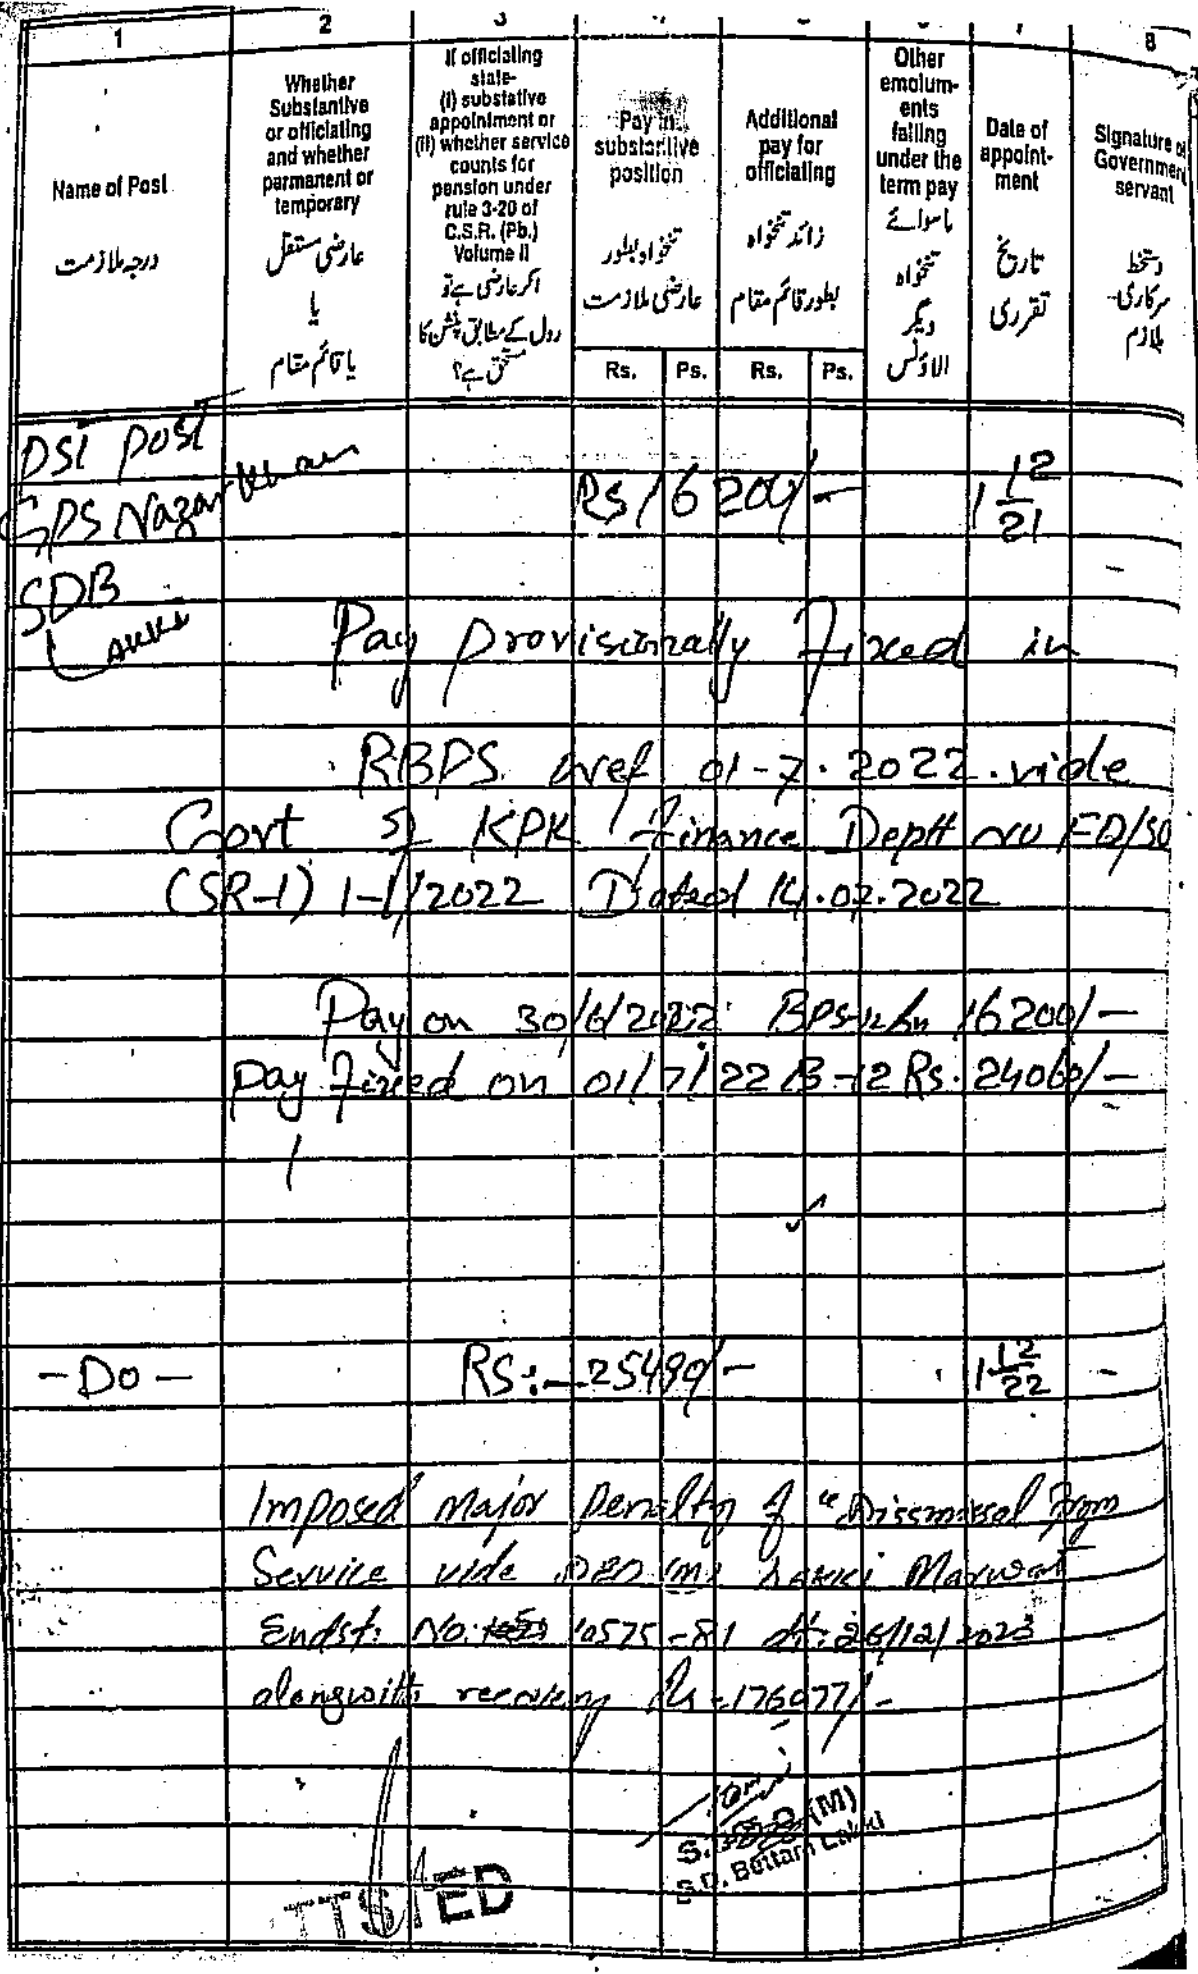 1 2 3 8
Name of Post
درجہ ملازمت
Whether
Substantive
or officiating
and whether
parmanent or
temporary
عارضی مستقل
یا
یا قائم مقام
If officiating
state-
(i) substative
appointment or
(ii) whether service
counts for
pension under
rule 3-20 of
C.S.R. (Pb.)
Volume II
اگر عارضی ہے تو
رول کے مطابق پنشن کا
مستحق ہے؟
Pay in
substantive
position
تنخواہ بطور
عارضی ملازمت
Rs. Ps.
Additional
pay for
officiating
زائد تنخواہ
بطور قائم مقام
Rs. Ps.
Other
emolum-
ents
falling
under the
term pay
ماسوائے
تنخواہ
دیگر
الاؤنس
Date of
appoint-
ment
تاریخ
تقرری
Signature of
Government
servant
دستخط
سرکاری
ملازم
PST post
GPS Nazar Khan Rs 16200/- 1 12/21
SDB
Lakki
Pay provisionally Fixed in
RBPS wef 01-7.2022.vide
Govt of KPK Finance Deptt no FD/SO
(SR-1) 1-1/2022 Dated 14.07.2022
Pay on 30/6/2022 BPS-12 16200/-
Pay Fixed on 01/7/22 B-12 Rs. 24060/-
-Do- RS:- 25490/- 1 12/22
Imposed Major Penalty of "Dissmissal From
Service vide DEO (M) Lakki Marwat
Endst: No: 10575-81 dt: 26/12/2023
alongwith recovery Rs = 176077/-
(M)
S.D. Bettani Lakki
ATTSTED